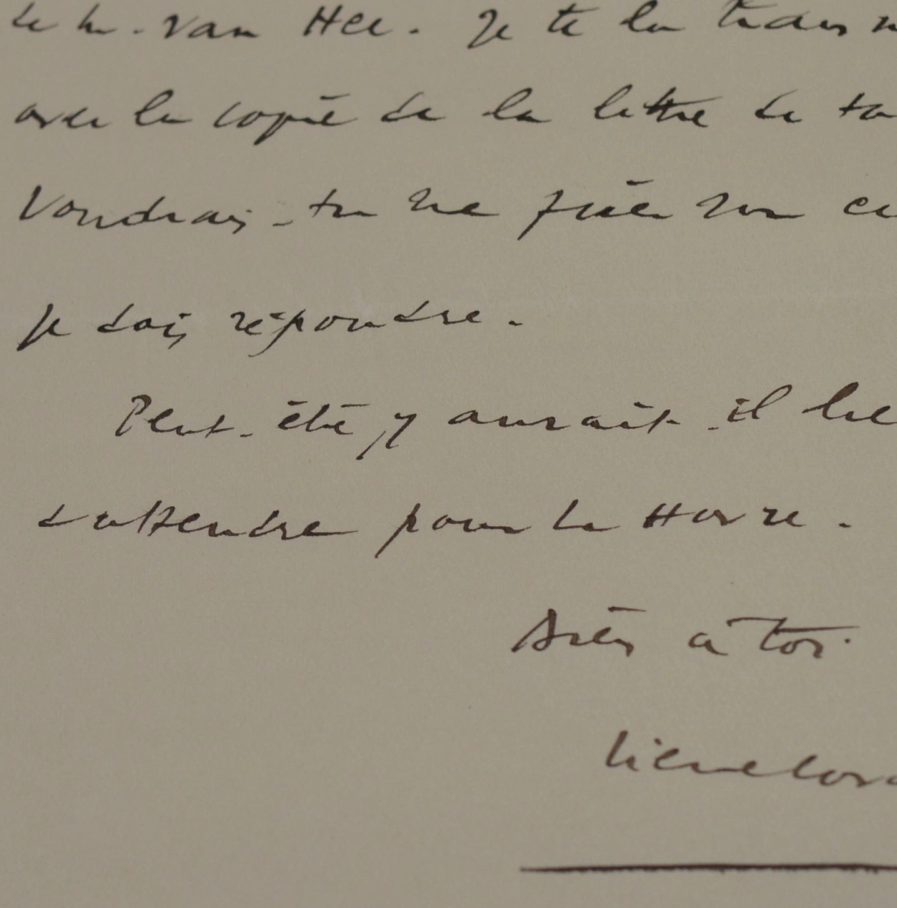 de M. van Hee. Je te la trans
avec la copie de la lettre de ta
Voudrais-tu me fixer sur ce
je dois répondre.
Peut-être y aurait-il lie
d'attendre pour la Horre.
Bien à toi.